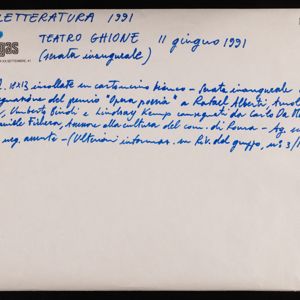 LETTERATURA 1991
TEATRO GHIONE 11 giugno 1991
(serata inaugurale)
10x13 incollate in cartoncino bianco - serata inaugurale
del premio "Opera poesia" a Rafael Alberti,
Umberto Bindi e Lindsay Kemp consegnati da Carlo
Assessore alla cultura del com. di Roma -
neg. assente - (Ulteriori informaz. in Riv. del gruppo, n: 3/